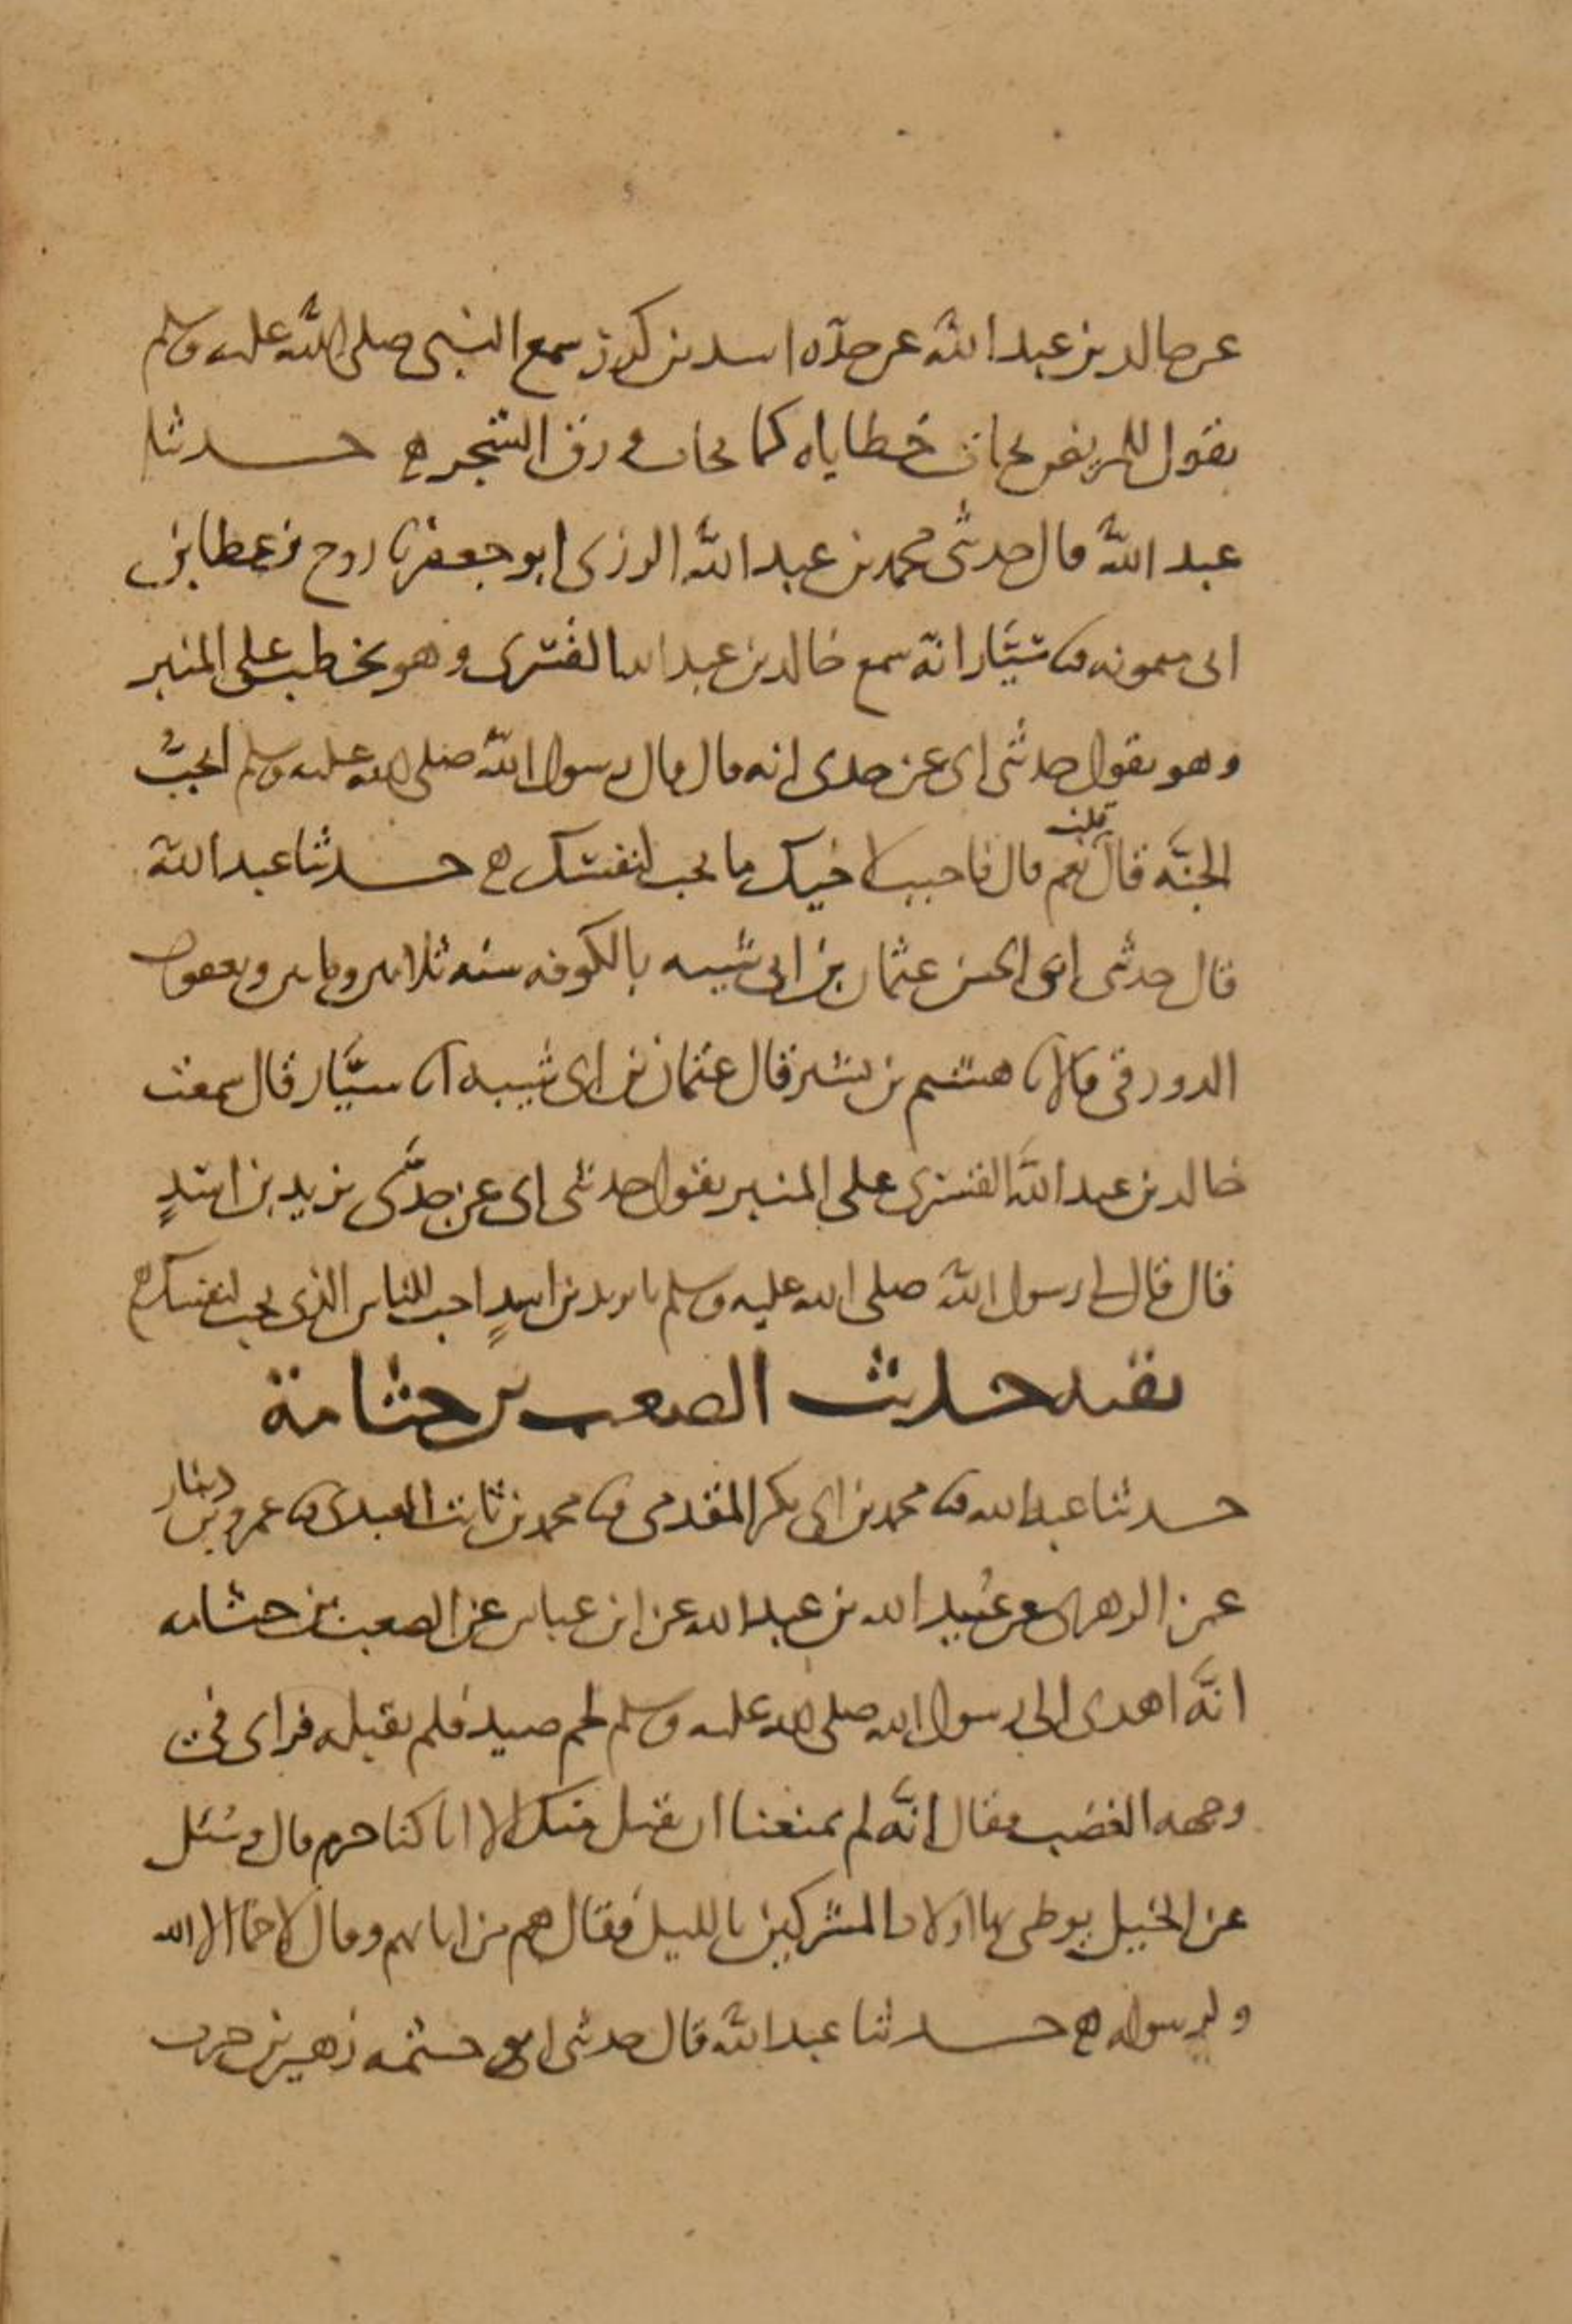 عن خالد بن عبد الله عن جده اسد بن كرز سمع النبي صلى الله عليه وسلم
يقول المريض تحات خطاياه كما تحات ورق الشجر ه حدثنا
عبد الله قال حدثني محمد بن عبد الله الرزى ابو جعفر نا روح بن عطا بن
ابى ميمونه نا سيَّار انه سمع خالد بن عبد الله القسرى وهو يخطب على المنبر
وهو يقول حدثنى ابى عن جدى انه قال قال رسول الله صلى الله عليه وسلم اتحبُّ
الجنَّة قال قلت نعم قال فاحبب لاخيك ما تحب لنفسك ه حدثنا عبد الله
قال حدثنى ابو الحسن عثمان بن ابى شيبه بالكوفه سنه ثلاثين وماتين ويعقوب
الدورقى قالا نا هشيم بن بشير قال عثمان بن ابى شيبه انا سيَّار قال سمعت
خالد بن عبد الله القسرى على المنبر يقول حدثنى ابى عن جدِّى يزيد بن اسدٍ
قال قال لى رسول الله صلى الله عليه وسلم يا يزيد بن اسدٍ احب للناس الذى تحب لنفسك ه
بقيه حديث الصعب بن جثامة
حدثنا عبد الله نا محمد بن ابى بكر المقدمى نا محمد بن ثابت العبدى نا عمرو بن دينار
عن الزهرى عن عُبيد الله بن عبد الله عن ابن عباس عن الصعب بن جثامه
انَّه اهدى الى رسول الله صلى الله عليه وسلم لحم صيد فلم يقبله فراى فى
وجهه الغضب فقال انَّه لم يمنعنا ان نقبل منك الا انا كنا حرم قال وسُئل
عن الخيل يوطى بها اولاد المشركين بالليل فقال هم من ابايهم وقال لا حما الا لله
ولرسوله ه حدثنا عبد الله قال حدثنى ابو خيثمه زهير بن حرب